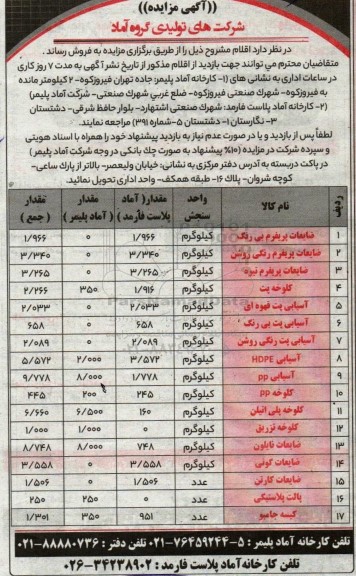 ((آگهی مزایده))
شرکت های تولیدی گروه آماد
در نظر دارد اقلام مشروح ذیل را از طریق برگزاری مزایده به فروش رساند .
متقاضیان محترم می توانند جهت بازدید از اقلام مذکور از تاریخ نشر آگهی به مدت ۷ روز کاری
در ساعات اداری به نشانی های (۱- کارخانه آماد پلیمر: جاده تهران فیروزکوه- ۲ کیلومتر مانده
به فیروزکوه- شهرک صنعتی فیروزکوه- ضلع غربی شهرک صنعتی- شرکت آماد پلیمر)
(۲- کارخانه آماد پلاست فارمد: شهرک صنعتی اشتهارد- بلوار حافظ شرقی- دشتستان
۳- نگارستان ۱- دشتستان ۵-شماره ۳۹۱) مراجعه نمایند.
لطفاً پس از بازدید و یا در صورت عدم نیاز به بازدید پیشنهاد خود را همراه با اسناد هویتی
و سپرده شرکت در مزایده (۱۰٪ پیشنهاد به صورت چک بانکی در وجه شرکت آماد پلیمر )
در پاکت دربسته به آدرس دفتر مرکزی به نشانی: خیابان ولیعصر- بالاتر از پارک ساعی-
کوچه شروان- پلاک ۱۶- طبقه همکف- واحد اداری تحویل نمائید.
ردیف نام کالا واحد سنجش مقدار( آماد پلاست فارمد ) مقدار ( آماد پلیمر ) مقدار ( جمع )
۱ ضایعات پریفرم بی رنگ کیلوگرم ۱/۹۶۶ ۰ ۱/۹۶۶
۲ ضایعات پریفرم رنگی روشن کیلوگرم ۳/۳۴۰ ۰ ۳/۳۴۰
۳ ضایعات پریفرم تیره کیلوگرم ۳/۲۶۵ ۰ ۳/۲۶۵
۴ کلوخه پت کیلوگرم ۱/۹۱۶ ۳۵۰ ۲/۲۶۶
۵ آسیابی پت قهوه ای کیلوگرم ۲/۰۳۳ ۰ ۲/۰۳۳
۶ آسیابی پت بی رنگ کیلوگرم ۶۵۸ ۰ ۶۵۸
۷ آسیابی پت رنگی روشن کیلوگرم ۲/۰۸۹ ۰ ۲/۰۸۹
۸ آسیابی HDPE کیلوگرم ۳/۵۷۲ ۲/۰۰۰ ۵/۵۷۲
۹ آسیابی pp کیلوگرم ۱/۷۷۸ ۸/۰۰۰ ۹/۷۷۸
۱۰ کلوخه pp کیلوگرم ۲۴۵ ۲۰۰ ۴۴۵
۱۱ کلوخه پلی اتیلن کیلوگرم ۱۶۰ ۶/۵۰۰ ۶/۶۶۰
۱۲ کلوخه تزریق کیلوگرم ۰ ۱/۰۰۰ ۱/۰۰۰
۱۳ ضایعات نایلون کیلوگرم ۷۴۸ ۸/۰۰۰ ۸/۷۴۸
۱۴ ضایعات گونی کیلوگرم ۳/۵۵۸ ۰ ۳/۵۵۸
۱۵ ضایعات کارتن عدد ۱/۵۰۶ ۰ ۱/۵۰۶
۱۶ پالت پلاستیکی عدد ۰ ۲۵۰ ۲۵۰
۱۷ کیسه جامبو عدد ۹۵۱ ۳۵۰ ۱/۳۰۱
تلفن کارخانه آماد پلیمر : ۵-۷۶۴۵۹۲۴۴-۰۲۱ تلفن دفتر : ۸۸۸۸۰۷۳۶-۰۲۱
تلفن کارخانه آماد پلاست فارمد : ۳۴۲۳۸۹۰۲-۰۲۶